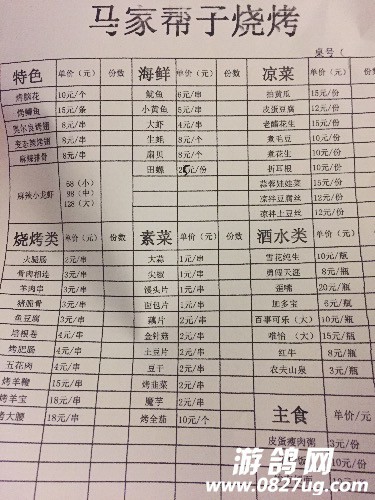 马家帮子烧烤
桌号（
特色 单价（元） 份数 海鲜 单价（元） 份数 凉菜 单价（元）
烤脑花 10元/个 鱿鱼 6元/串 拍黄瓜 15元/份
烤鲫鱼 15元/条 小黄鱼 5元/串 皮蛋豆腐 12元/份
奥尔良烤翅 8元/串 大虾 4元/串 老醋花生 15元/份
变态辣烤翅 8元/串 生蚝 8元/个 煮毛豆 10元/份
麻辣排骨 8元/串 扇贝 8元/个 煮花生 10元/份
田螺 25元/份 折耳根 10元/份
麻辣小龙虾 68（小） 蒜蓉娃娃菜 15元/份
98（中） 凉拌豆腐丝 12元/份
128（大） 凉拌土豆丝 12元/份
烧烤类 单价（元） 份数 素菜 单价（元） 份数 酒水类 单价（元）
火腿肠 2元/串 大蒜 1元/串 雪花纯生 10元/瓶
骨肉相连 3元/串 尖椒 1元/串 勇闯天涯 8元/瓶
羊肉串 3元/串 馒头片 1元/串 歪嘴 20元/瓶
猪脆骨 3元/串 面包片 1元/串 加多宝 6元/瓶
鱼豆腐 3元/串 藕片 2元/串 百事可乐（大） 10元/瓶
培根卷 4元/串 金针菇 2元/串 唯怡（大） 15元/瓶
烤肥肠 4元/串 土豆片 2元/串 红牛 8元/瓶
五花肉 4元/串 豆干 2元/串 农夫山泉 3元/瓶
烤羊鞭 15元/串 烤韭菜 2元/串
烤羊宝 18元/串 魔芋 2元/串 主食 单价/元
烤大腰 18元/串 烤全茄 10元/个 皮蛋瘦肉粥 3元/份
饭 10元/份
游鸽网
www.0827ug.com